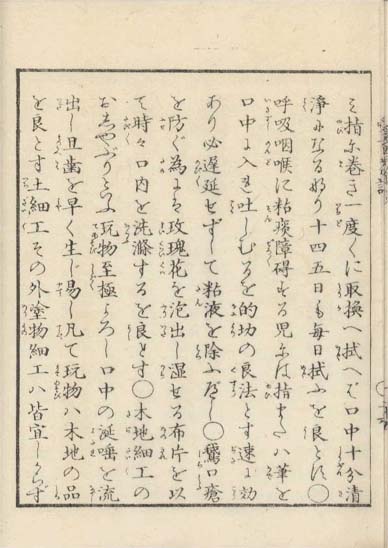 を指に巻き一度くに取換へ拭へば口中十分清
浄になるなり十四五日も毎日拭ふを良とす〇
呼吸咽喉に粘痰障碍する児には指または筆を
口中に入れ吐しむるを的切の良法とす速に功
あり必遅延せずして粘液を除ふべし〇鵞口瘡
を防ぐ為には玫瑰花を泡出し湿せる布片を以
て時々口内を洗滌するを良とす〇木地細工の
おしやぶりといふ玩物至極よろし口中の涎唾を流
出し且歯を早く生じ易し凡て玩物ハ木地の品
を良とす土細工その外塗物細工ハ皆宜しからず